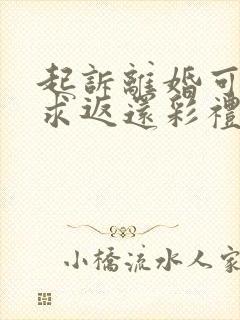 起訴離婚可
求返還彩禮
小橋流水人家